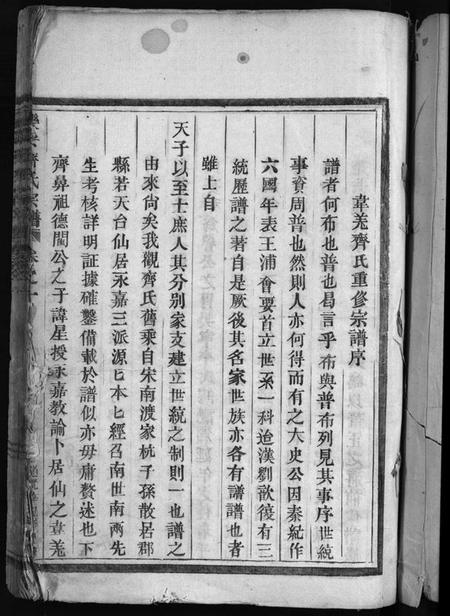 韋羗齊氏重修宗譜序
譜者何布也普也曷言乎布與普布列見其事序世統
事資周普也然則人亦何得而有之大史公因秦紀作
六國年表王浦會要首立世系一科迨漢劉歆復有三
統歷譜之著自是厥後其名家世族亦各有譜譜也者
雖上自
天子以至士庶人其分别家支建立世統之制則一也譜之
由來尙矣我觀齊氏舊乘自宋南渡家杭子孫散居郡
縣若天台仙居永嘉三派源匕本匕經召南世南兩先
生考核詳明証據確鑿備載於譜似亦毋庸贅述也下
齊鼻祖德閶公之子諱星授永嘉教論卜居仙之韋羗
樂安齊氏宗譜
卷之一